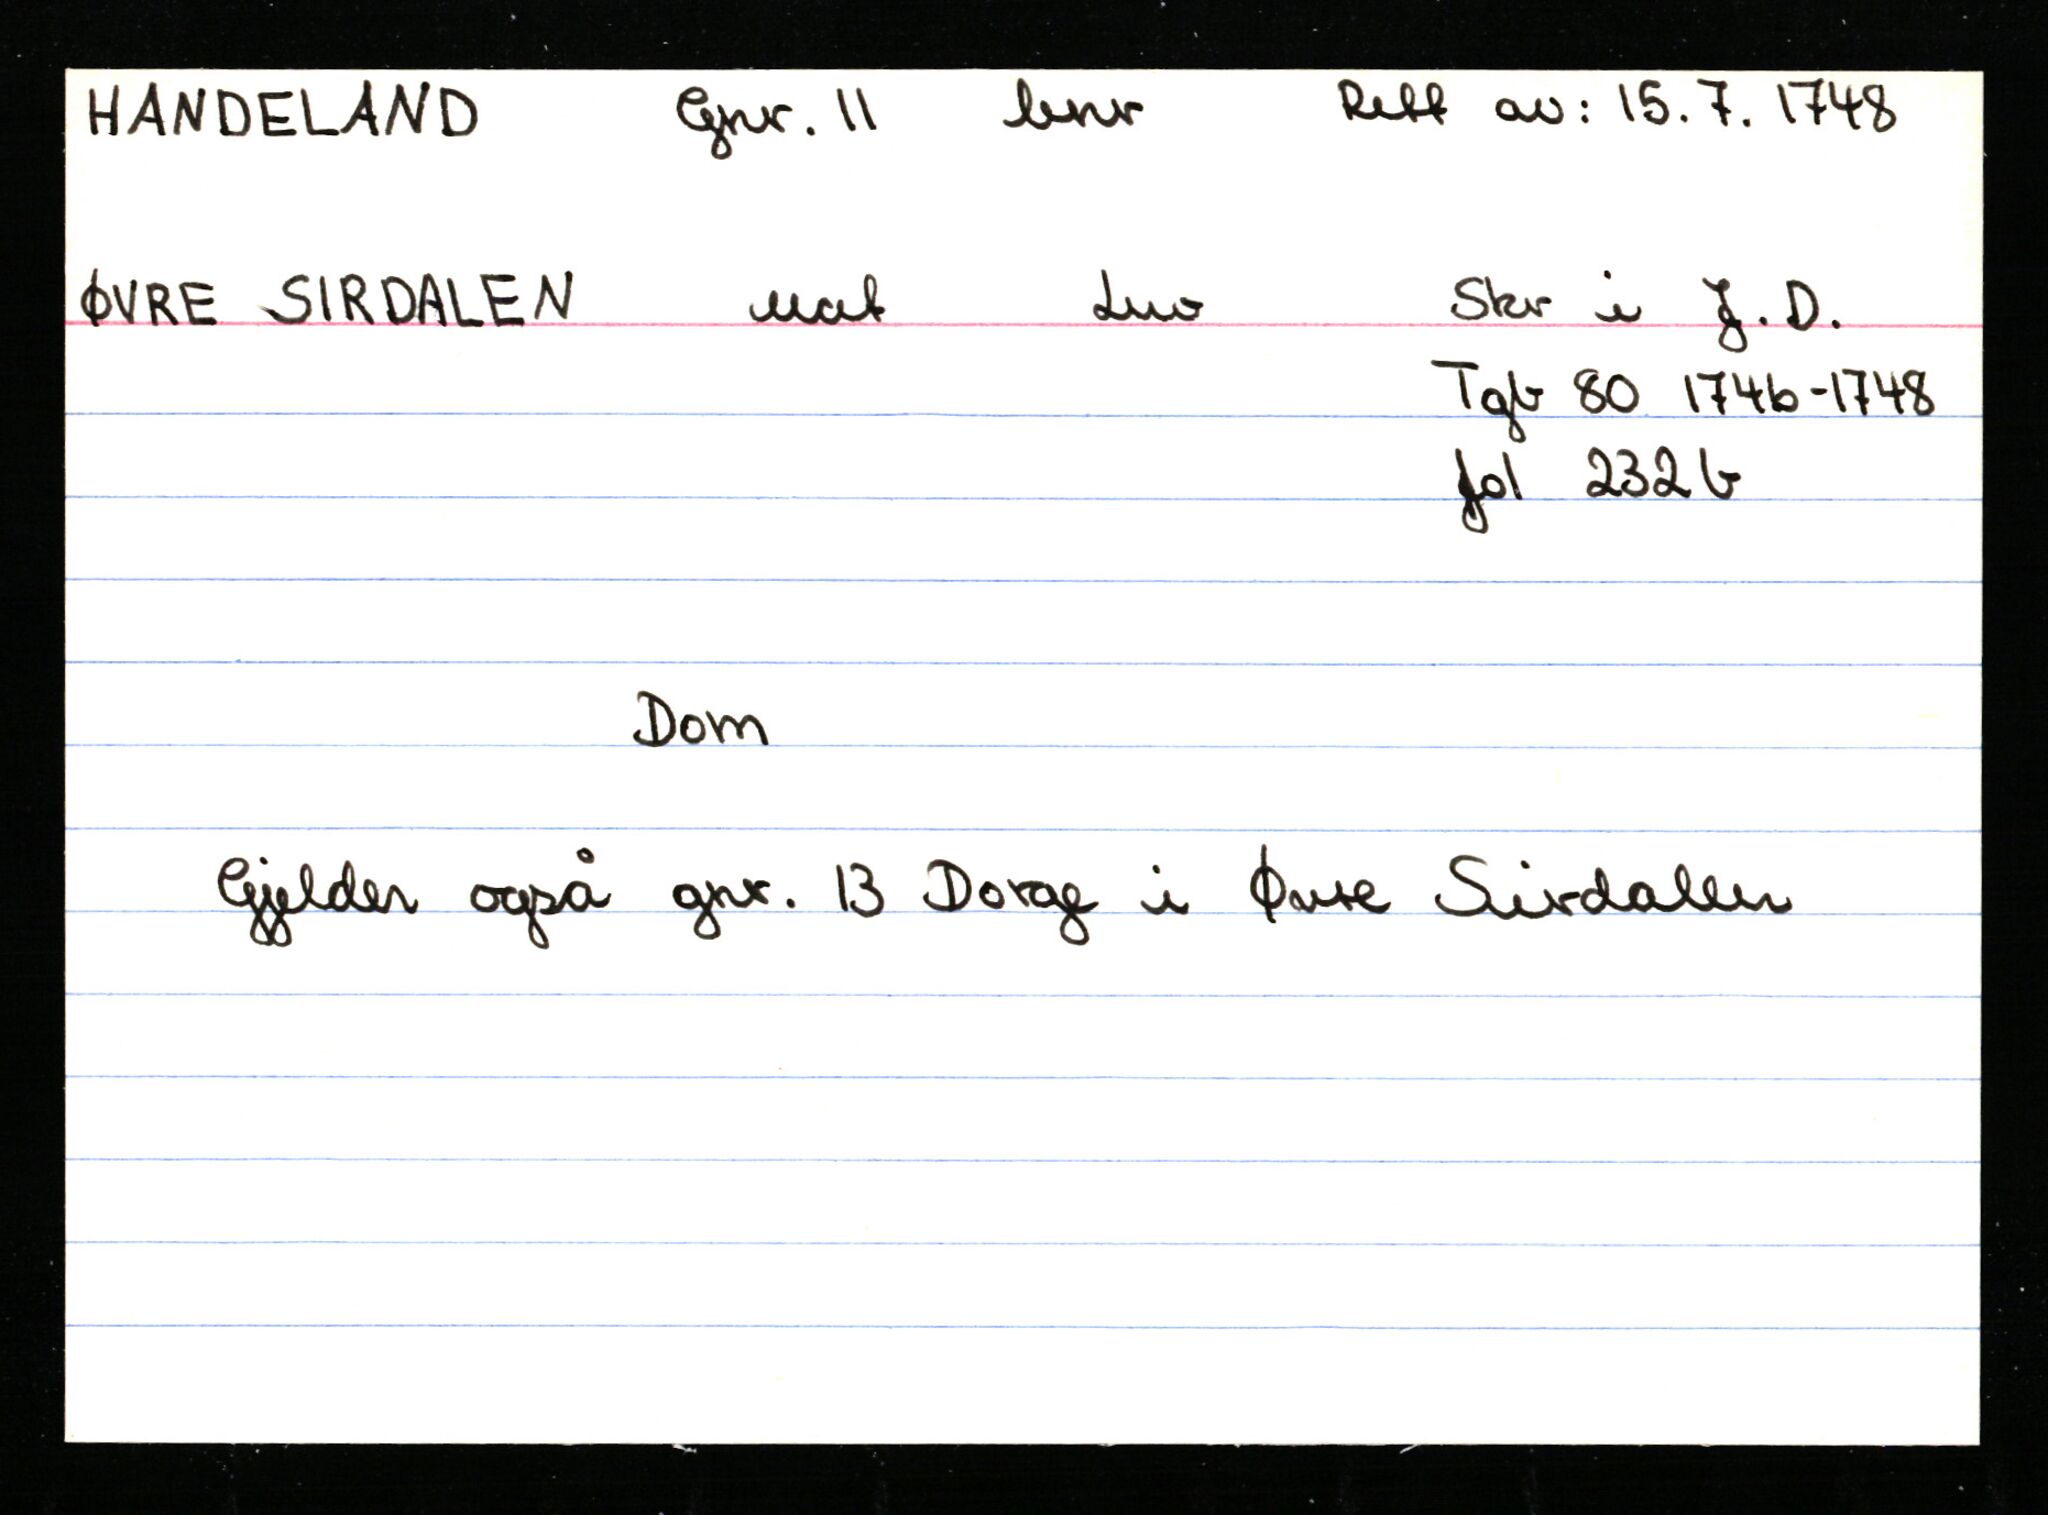 HANDELAND Gnr. 11 bnr Rett av: 15. 7. 1748
ØVRE SIRDALEN Mat Lnv Skr i J. D.
Tgb 80 1746-1748
fol 232 b
Dom
Gjelder også gnr. 13 Dorge i Øvre Sirdalen